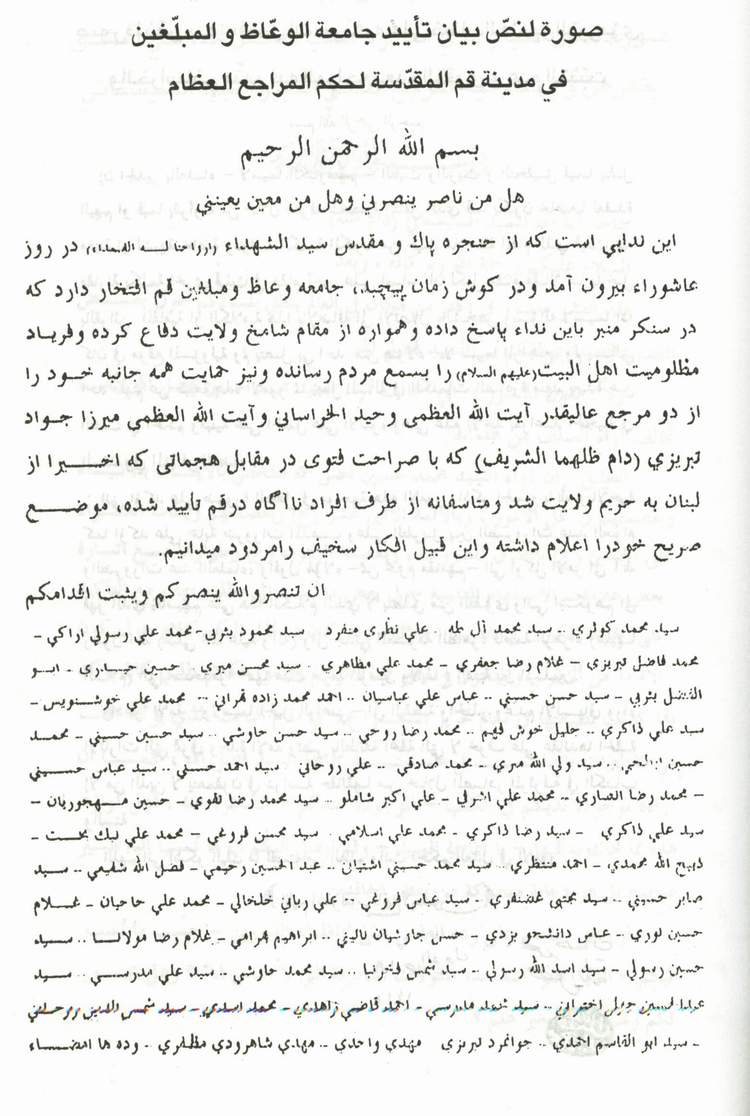 صورة لنصّ بيان تأييد جامعة الوعّاظ و المبلّغين
في مدينة قم المقدّسة لحكم المراجع العظام
بسم الله الرحمن الرحيم
هل من ناصر ينصرني وهل من معين يعينني
اين ندايي است كه از حنجره پاك و مقدس سيد الشهداء (ارواحنا لـه الفداء) در روز
عاشوراء بيرون آمد ودر كوش زمان پيچيد، جامعه وعاظ ومبلغين قم افتخار دارد كه
در سنكر منبر باين نداء پاسخ داده وهمواره از مقام شامخ ولايت دفاع كرده وفريـاد
مظلوميت اهل البيت(عليهم السلام) را بسمع مردم رسانده ونيز حمايت همه جانبه خـود را
از دو مرجع عاليقدر آيت الله العظمى وحيد الخراساني وآيت الله العظمى ميرزا جـواد
تبريزي (دام ظلهما الشريف) كه با صراحت فتوى در مقابل هجماتى كه اخـيرا از
لبنان به حريم ولايت شد ومتاسفانه از طرف افراد ناآگاه درقم تأييد شده، موضـع
صريح خودرا اعلام داشته واين قبيل افكار سخيف رامردود ميدانيم.
ان تنصروالله ينصركم ويثبت اقدامكم
سيد محمد كوثري - سيد محمد آل طه - علي نظري منفرد - سيد محمود يثربي- محمد علي رسولي اراكي -
محمد فاضل تبريزي - غلام رضا جعفري - محمد علي مظاهري - سيد محسن ميري - حسين حيـدري - ابـو
الفضل يثربي - سيد حسن حسيني - عباس علي عباسيان - احمد محمد زاده تهراني - محمد علي خوشنويس -
سيد علي ذاكري - جليل خوش فهم - محمد رضا روحي - سيد حسن حاوشي - سيد حسين حسيني - محمـد
حسين - سيد ولي الله ميري - محمد صادقي - علي روحاني - سيد احمد حسني - سيد عباس حسـيني
- محمد رضا انصاري - محمد علي اشرفي - علي اكبر شاملو - سيد محمد رضا تقوي - حسين
سيد علي ذاكري - سيد رضا ذاكري - محمد علي اسلامي - سيد محسن فروغي - محمد علي نيك بخـت -
ذبيح الله محمدي - احمد منتظري - سيد محمد حسيني اشتيان - عبد الحسين رحيمي - فضل الله شفيعي - سـيد
صابر حسيني - سيد مجتبى غضنفري - سيد عباس فروغي - علي رباني خلخالي - محمد علي حاجيان - غـلام
حسين نوري - عباس دانشجو يزدي - حسن - ابراهيم بهرامي - غلام رضا مولانـا - سـيد
حسين رسولي - سيد اسد الله رسولي - سيد شمس فخرنيا - سيد محمد حاوشي - سيد علي مدرسـي - سـيد
عبد الحسين - سيد محمد مدرسي - احمد قاضي زاهدي - محمد اسدي - سيد شمس الدين
- سيد ابو القاسم احمدي - جوانمرد تبريزي - مهدي واحدي - مهدي شاهرودي مظفري - وده ها امضـاء